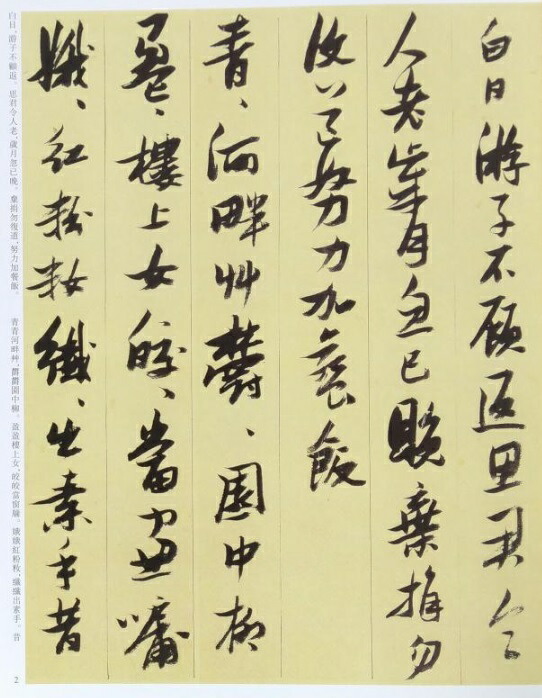 白日游子不顧返思君令
人老歲月忽已晚棄捐勿
復道努力加餐飯
青、河畔艸鬱、園中柳
盈、樓上女皎、當窗牖
娥、紅粉妝纖、出素手昔
白日，游子不顧返。思君令人老，歲月忽已晚。棄捐勿復道，努力加餐飯。　青青河畔艸，鬱鬱園中柳。盈盈樓上女，皎皎當窗牖。娥娥紅粉妝，纖纖出素手。昔
2